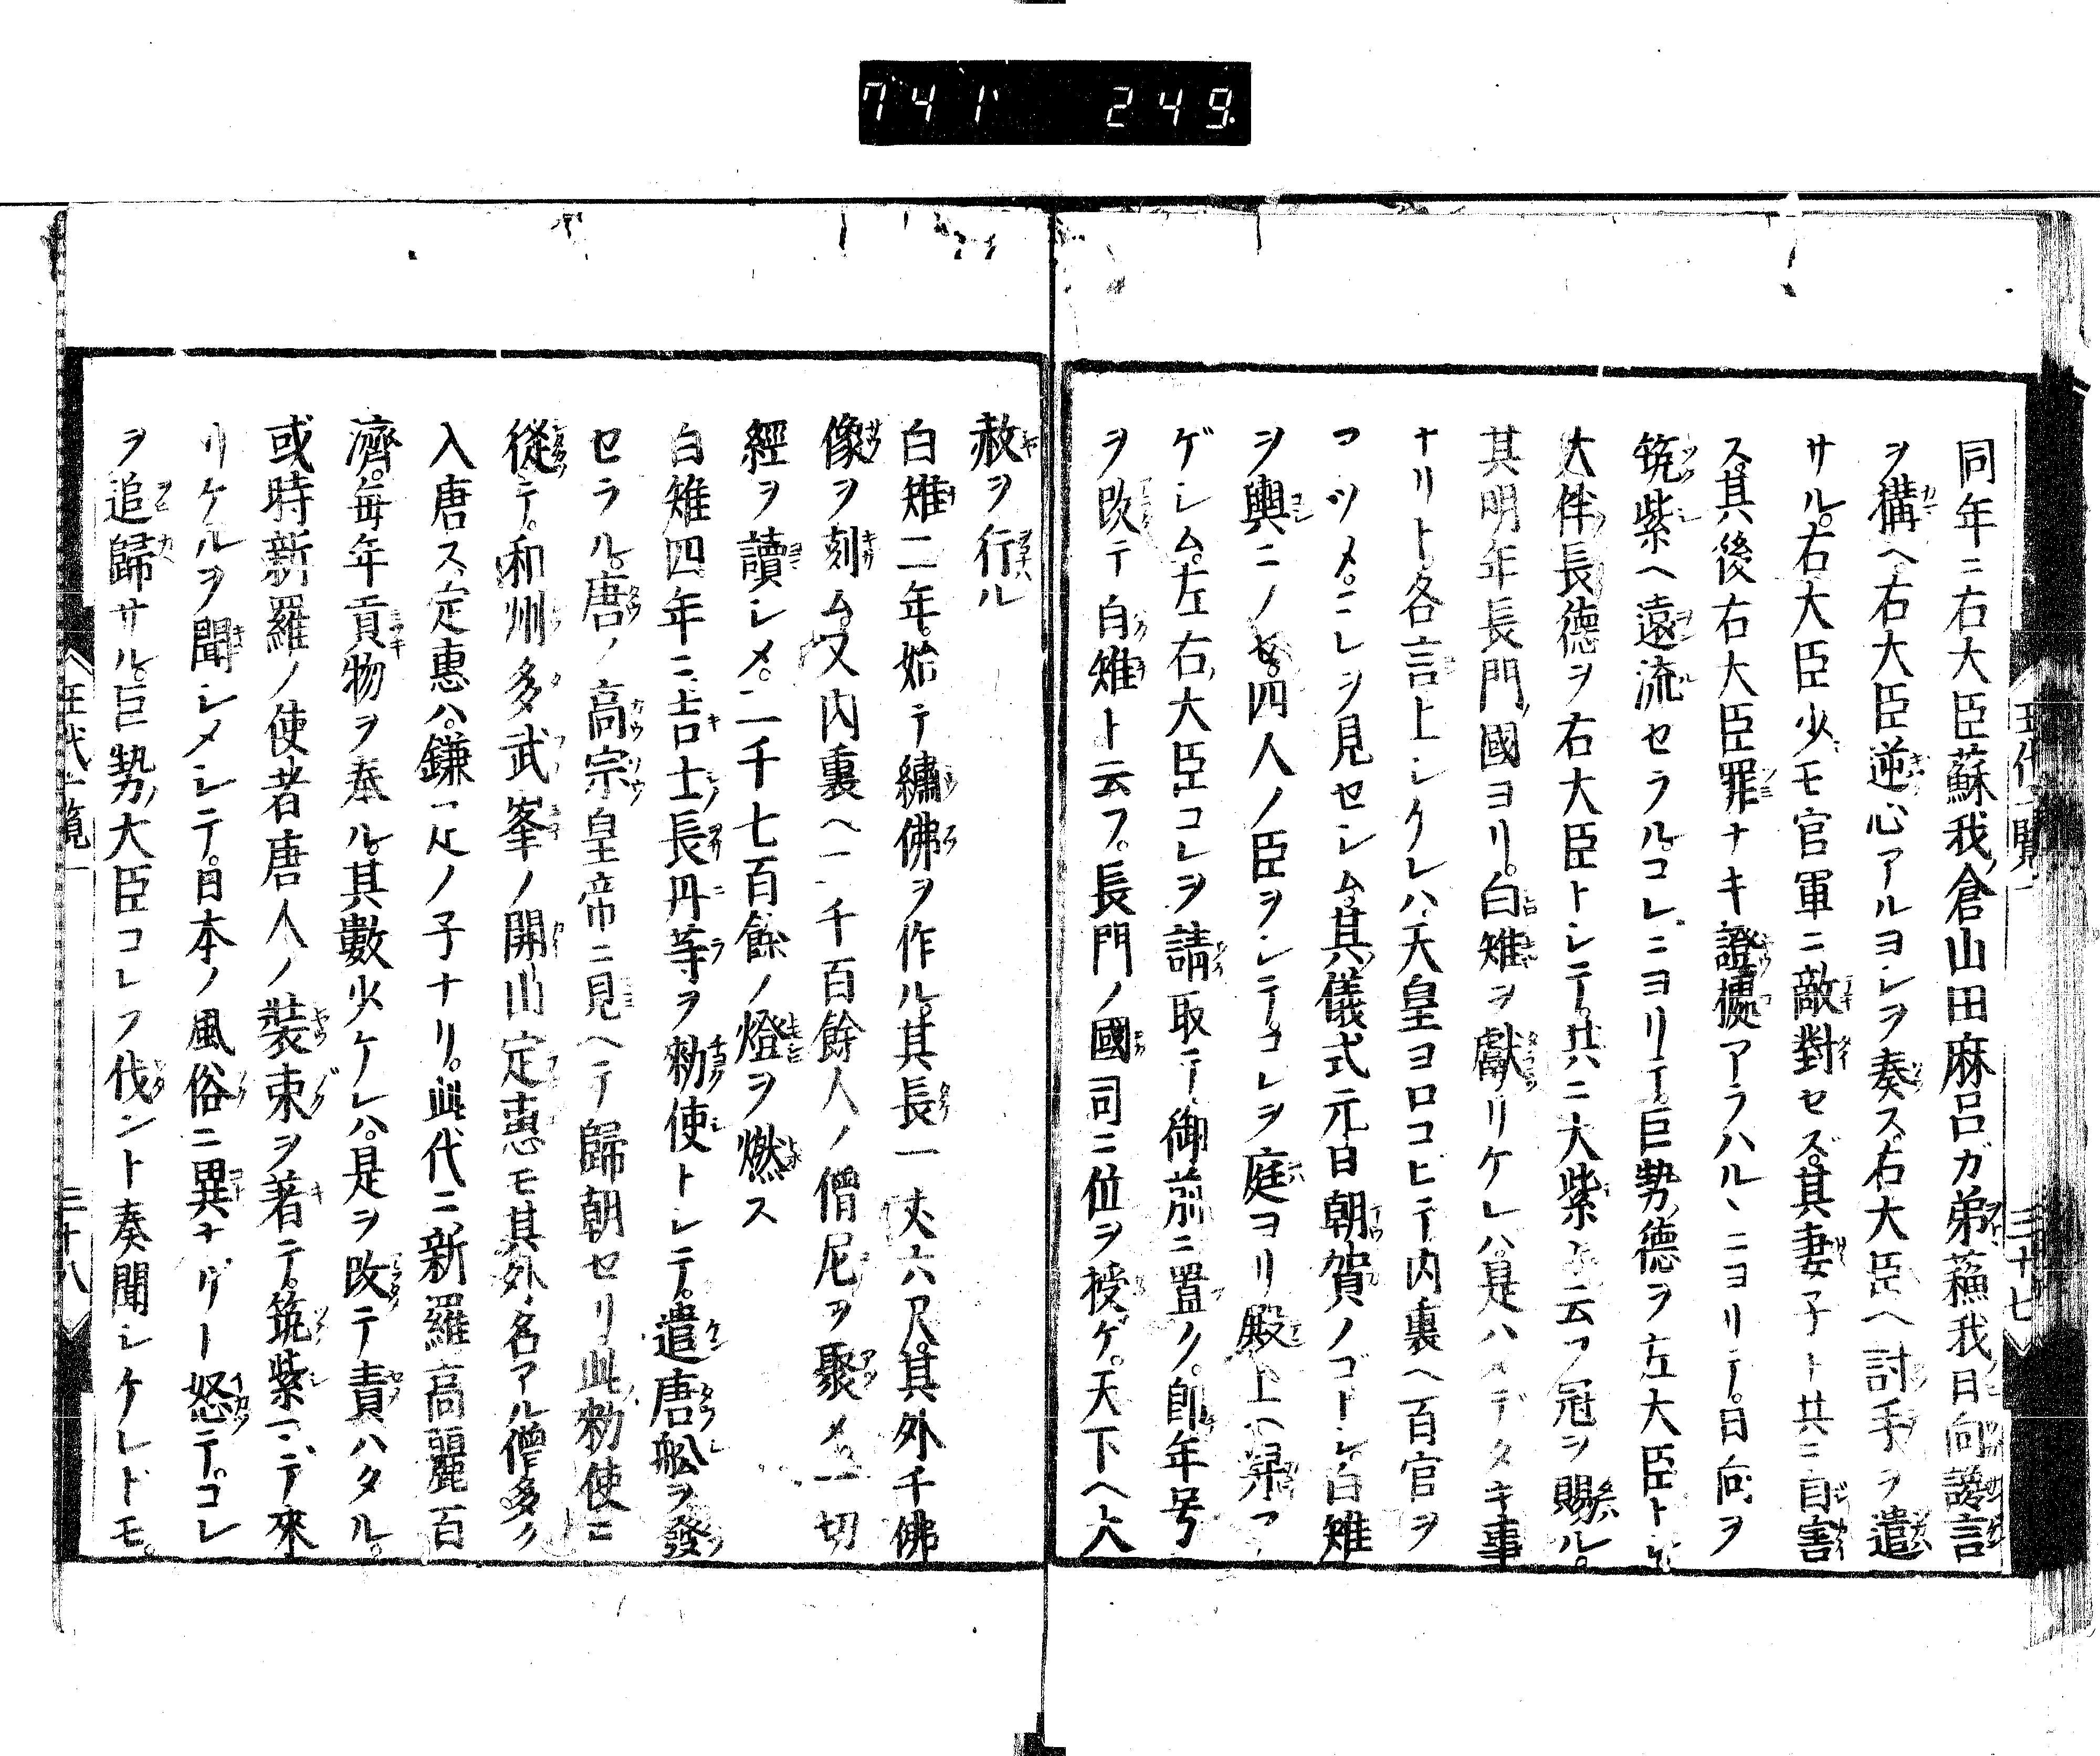 741 249
王代一覽一 三十七
同年ニ右大臣蘇我倉山田麻呂ガ弟蘓我日向讒言
ヲ構ヘ右大臣逆心アルヨシヲ奏ス右大臣ヘ討手ヲ遣
サル。右大臣少モ官軍ニ敵對セズ。其妻子ト共ニ自害
ス。其後右大臣罪ナキ證據アラハルヽニヨリテ。日向ヲ
筑紫ヘ遠流セラル。コレニヨリテ。巨勢德ヲ左大臣トシ。
大伴長德ヲ右大臣トシテ。共ニ大紫ト云フ冠ヲ賜ル。
其明年長門國ヨリ。白雉ヲ獻リケレハ。是ハメデタキ事
ナリト各言上シケレハ。天皇ヨロコヒテ内裏ヘ百官ヲ
アツメ。コレヲ見セシム。其儀式元日朝賀ノゴトシ。白雉
ヲ輿ニノセ。四人ノ臣ヲシテ。コレヲ庭ヨリ殿上ヘ舁ア
ゲシム。左右大臣コレヲ請取テ御前ニ置ク。卽年号
ヲ改テ白雉ト云フ。長門ノ國司ニ位ヲ授ケ。天下ヘ大
赦ヲ行ル
白雉二年。始テ繡佛ヲ作ル。其長一丈六尺。其外千佛
像ヲ刻ム。又内裏ヘ二千百餘人ノ僧尼ヲ聚メ。一切
經ヲ讀シメ。二千七百餘ノ燈ヲ燃ス
白雉四年ニ吉士長丹等ヲ勅使トシテ。遣唐舩ヲ發
セラル。唐ノ高宗皇帝ニ見ヘテ歸朝セリ。此勅使ニ
從テ。和州多武峯ノ開山定惠モ其外名アル僧多ク
入唐ス。定惠ハ。鎌足ノ子ナリ。此代ニ新羅高麗百
濟。每年貢物ヲ奉ル。其數少ケレハ。是ヲ改テ責ハタル。
或時新羅ノ使者唐人ノ裝束ヲ著テ。筑紫マデ來
リケルヲ聞シメシテ。日本ノ風俗ニ異ナリト怒テ。コレ
ヲ追歸サル。巨勢大臣コレヲ伐ント奏聞シケレトモ。
王代一覽一 三十八